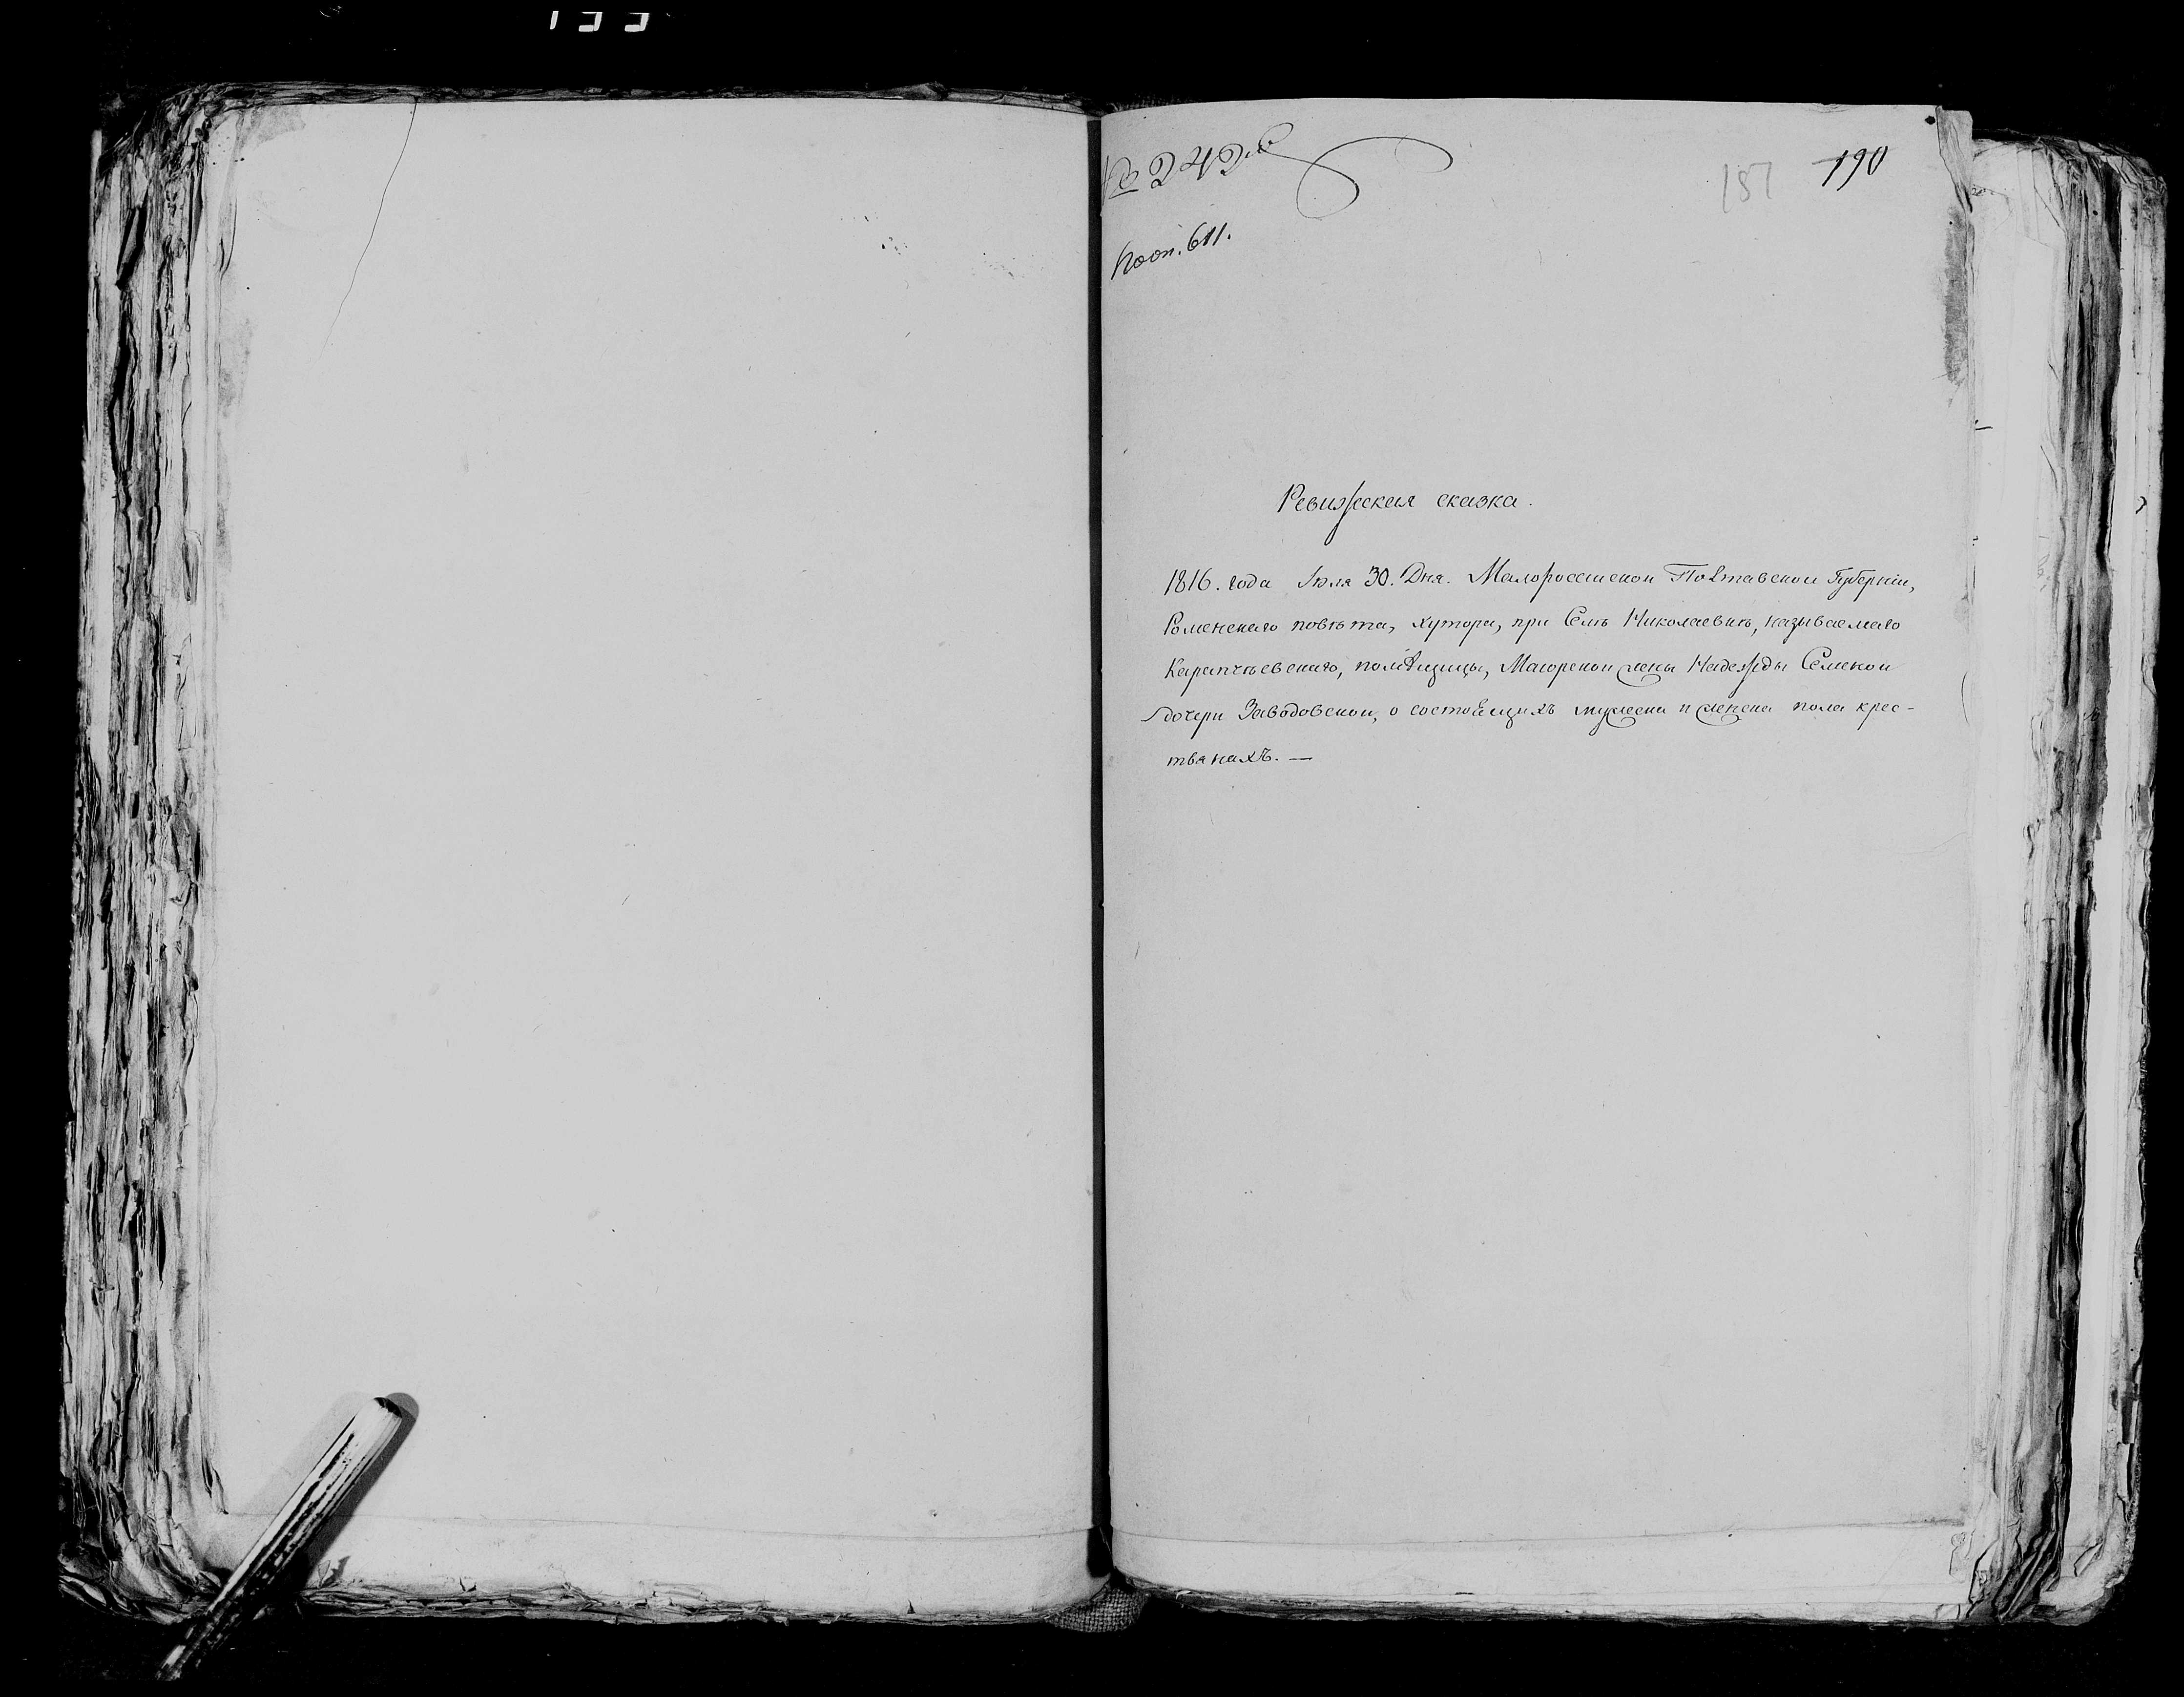 № 242й
По оп. 611.
151 190
Ревизская сказка.
1816. года Июля 30. Дня. Малоросспской Полтавской Губернии,
Роменскаго повѣта, хутора, при Селѣ Николаевкѣ, называемаго
помѣщицы, Маиорской жены Надежды Семеной
дочери Заводовской, о состоящихъ мужеска и женска пола крес-
тьянахъ. —